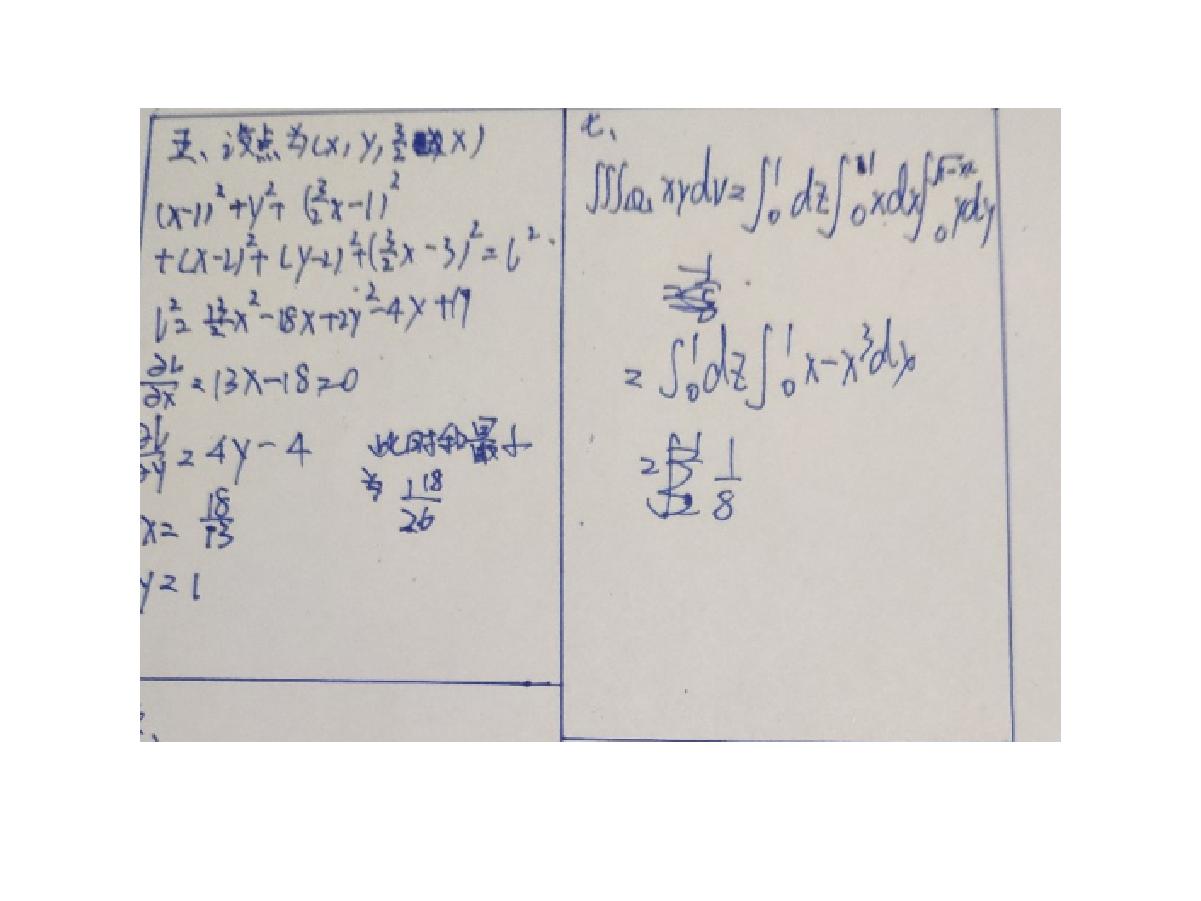 五、设点为(x, y, 3/2 x)
(x-1)²+y²+(3/2x-1)²
+(x-2)²+(y-2)²+(3/2x-3)²=l²
l²=13/2x²-18x+2y²-4y+19
∂L/∂x=13x-18=0
∂L/∂y=4y-4
此时和最小
为 118/26
x=18/13
y=1
七、
∭Ω xydv=∫₀¹dz∫₀¹xdx∫₀ ydy
=∫₀¹dz∫₀¹x-x³dx
=1/8